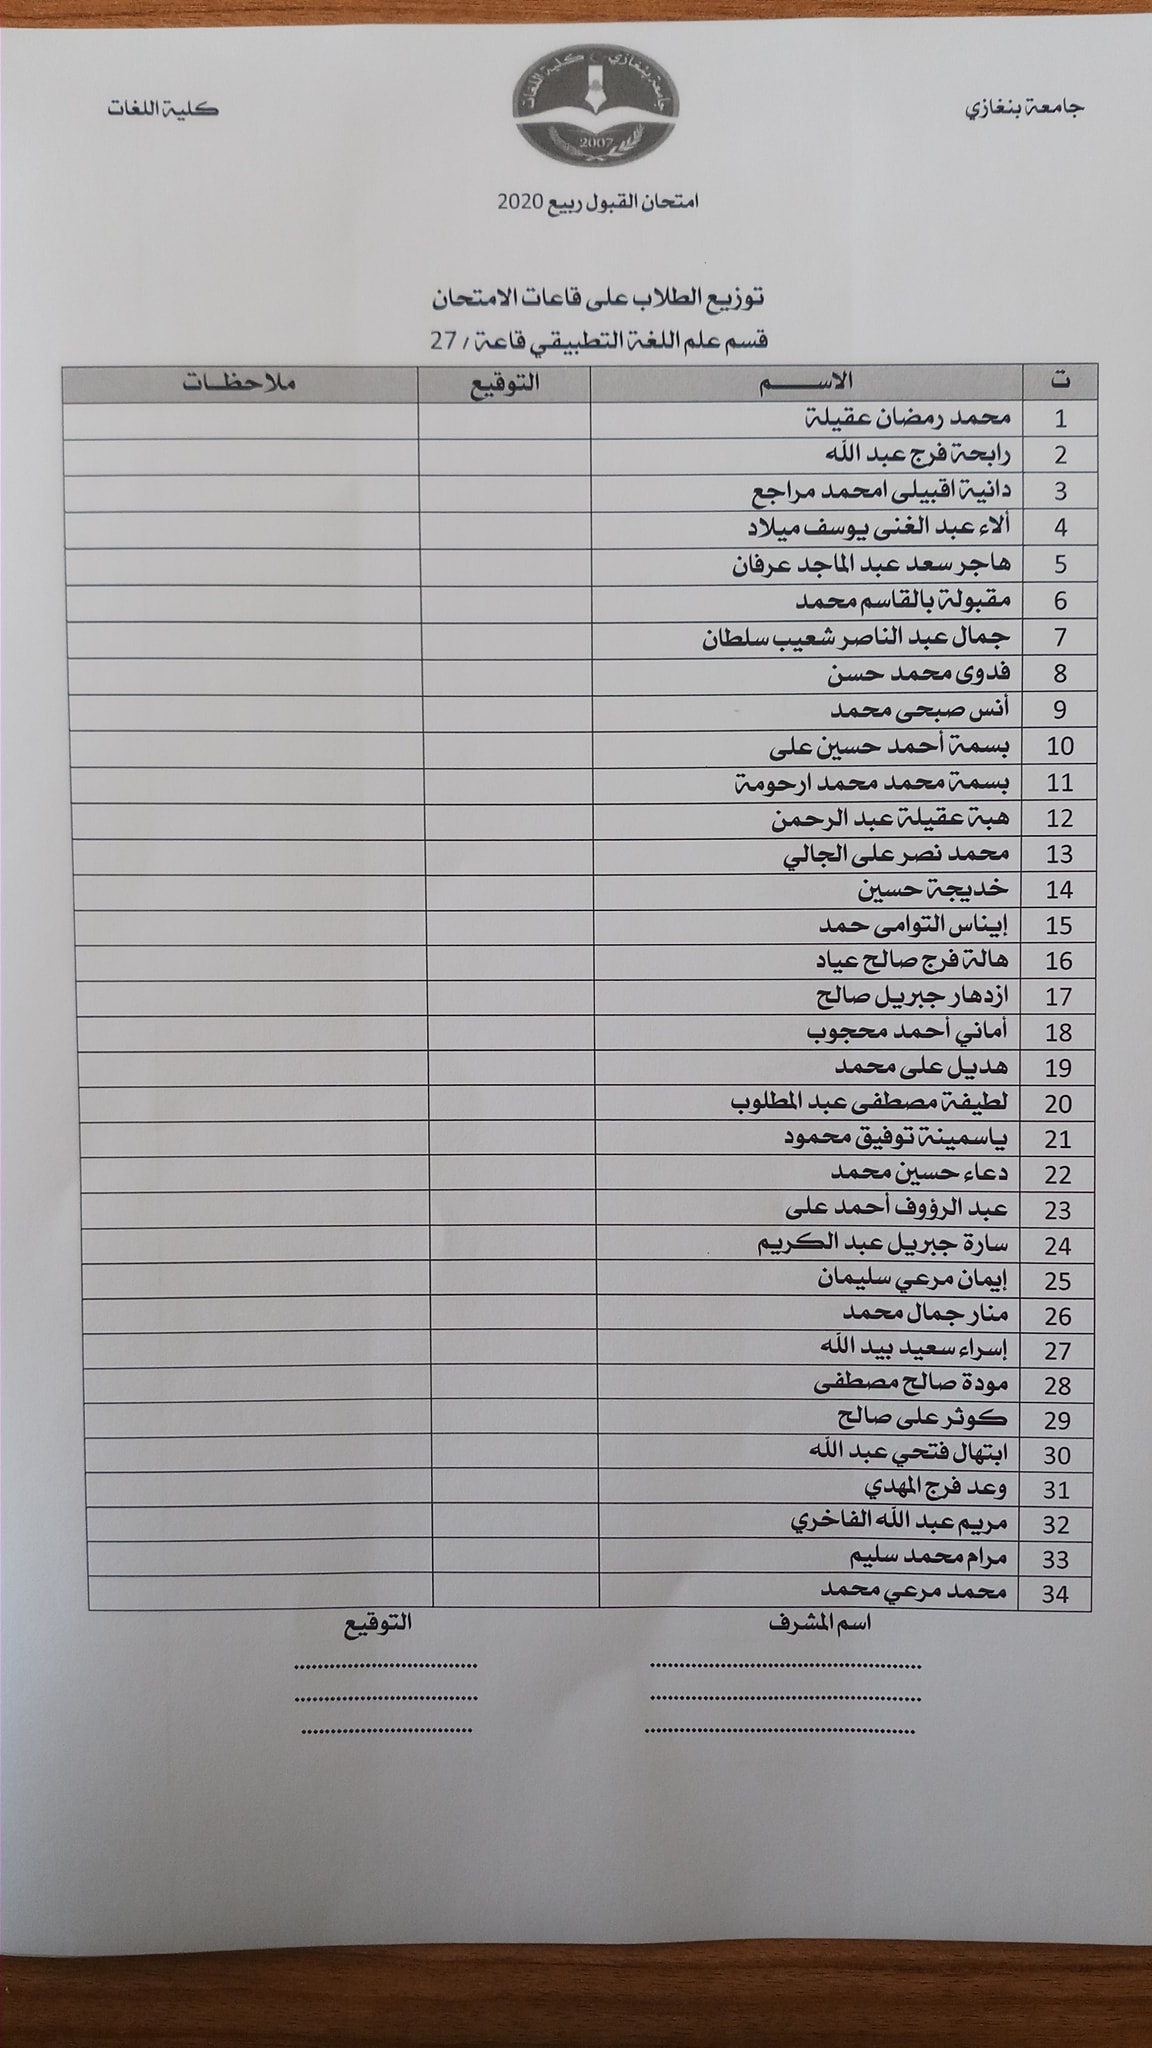 جامعة بنغازي
جامعة بنغازي كلية اللغات
2007
كلية اللغات
امتحان القبول ربيع 2020
توزيع الطلاب على قاعات الامتحان
قسم علم اللغة التطبيقي قاعة / 27
ت الاســـــم التوقيع ملاحظــات
1 محمد رمضان عقيلة
2 رابحة فرج عبد الله
3 دانية اقبيلى امحمد مراجع
4 ألاء عبد الغنى يوسف ميلاد
5 هاجر سعد عبد الماجد عرفان
6 مقبولة بالقاسم محمد
7 جمال عبد الناصر شعيب سلطان
8 فدوى محمد حسن
9 أنس صبحى محمد
10 بسمة أحمد حسين على
11 بسمة محمد محمد ارحومة
12 هبة عقيلة عبد الرحمن
13 محمد نصر على الجالي
14 خديجة حسين
15 إيناس التوامى حمد
16 هالة فرج صالح عياد
17 ازدهار جبريل صالح
18 أماني أحمد محجوب
19 هديل على محمد
20 لطيفة مصطفى عبد المطلوب
21 ياسمينة توفيق محمود
22 دعاء حسين محمد
23 عبد الرؤوف أحمد على
24 سارة جبريل عبد الكريم
25 إيمان مرعي سليمان
26 منار جمال محمد
27 إسراء سعيد بيد الله
28 مودة صالح مصطفى
29 كوثر على صالح
30 ابتهال فتحي عبد الله
31 وعد فرج المهدي
32 مريم عبد الله الفاخري
33 مرام محمد سليم
34 محمد مرعي محمد
اسم المشرف التوقيع